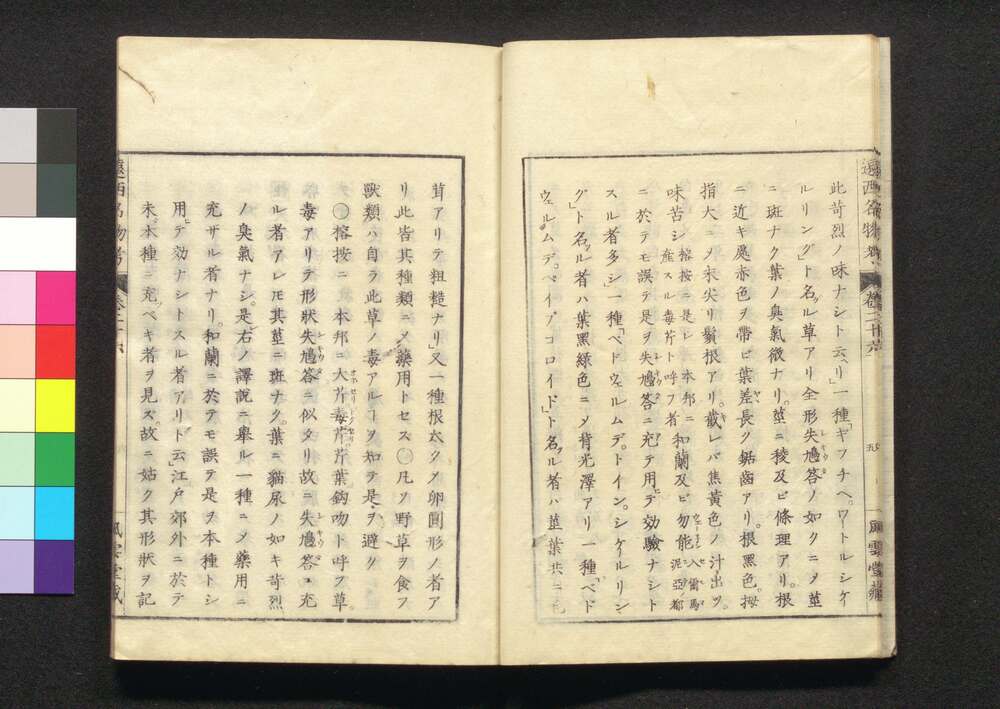 此苛烈ノ味ナシト云リ」一種「ギフチヘ、ワートルシケイ
ルリング」ト名ル草アリ全形失鳩答ノ如クニメ莖
ニ斑ナク葉ノ臭氣微ナリ。莖ニ稜及ビ條理アリ。根
ニ近キ處赤色ヲ帶ビ葉差長ク鋸齒アリ。根黑色。拇
指大ニメ末尖リ鬚根アリ。截レバ焦黃色ノ汁出ヅ。
味苦シ榕按ニ是レ本邦ニ産スル毒芹ト呼フ者和蘭及ビ勿能入爾馬泥亞都
ニ於テモ誤テ是ヲ失鳩答ニ充テ用テ效驗ナシト
スル者多シ」一種「ベドウェルムデ。ドイン。シケイルリン
グ」ト名ル者ハ葉黑綠色ニメ背光澤アリ一種「ベド
ウェルムデ。ペイプコロイド」ト名ル者ハ莖葉共ニ
遠西名物考 卷二十六 五 風雲堂藏
茸アリテ粗糙ナリ」又一種根太クメ卵圓形ノ者ア
リ此皆其種類ニメ藥用トセス○凡ソ野草ヲ食フ
獸類ハ自ラ此草ノ毒アルヿヲ知テ是ヲ避ク
○榕按ニ本邦ニ大芹毒芹芹葉鈎吻ト呼フ草。
毒アリテ形狀失鳩答ニ似タリ故ニ失鳩答ニ充
ル者アレモ其莖ニ斑ナク。葉ニ貓尿ノ如キ苛烈
ノ臭氣ナシ。是右ノ譯說ニ擧ル一種ニメ藥用ニ
充サル者ナリ。和蘭ニ於テモ誤テ是ヲ本種トシ
用テ效ナシトスル者アリト云」江戶郊外ニ於テ
未本種ニ充ベキ者ヲ見ズ。故ニ姑ク其形狀ヲ記